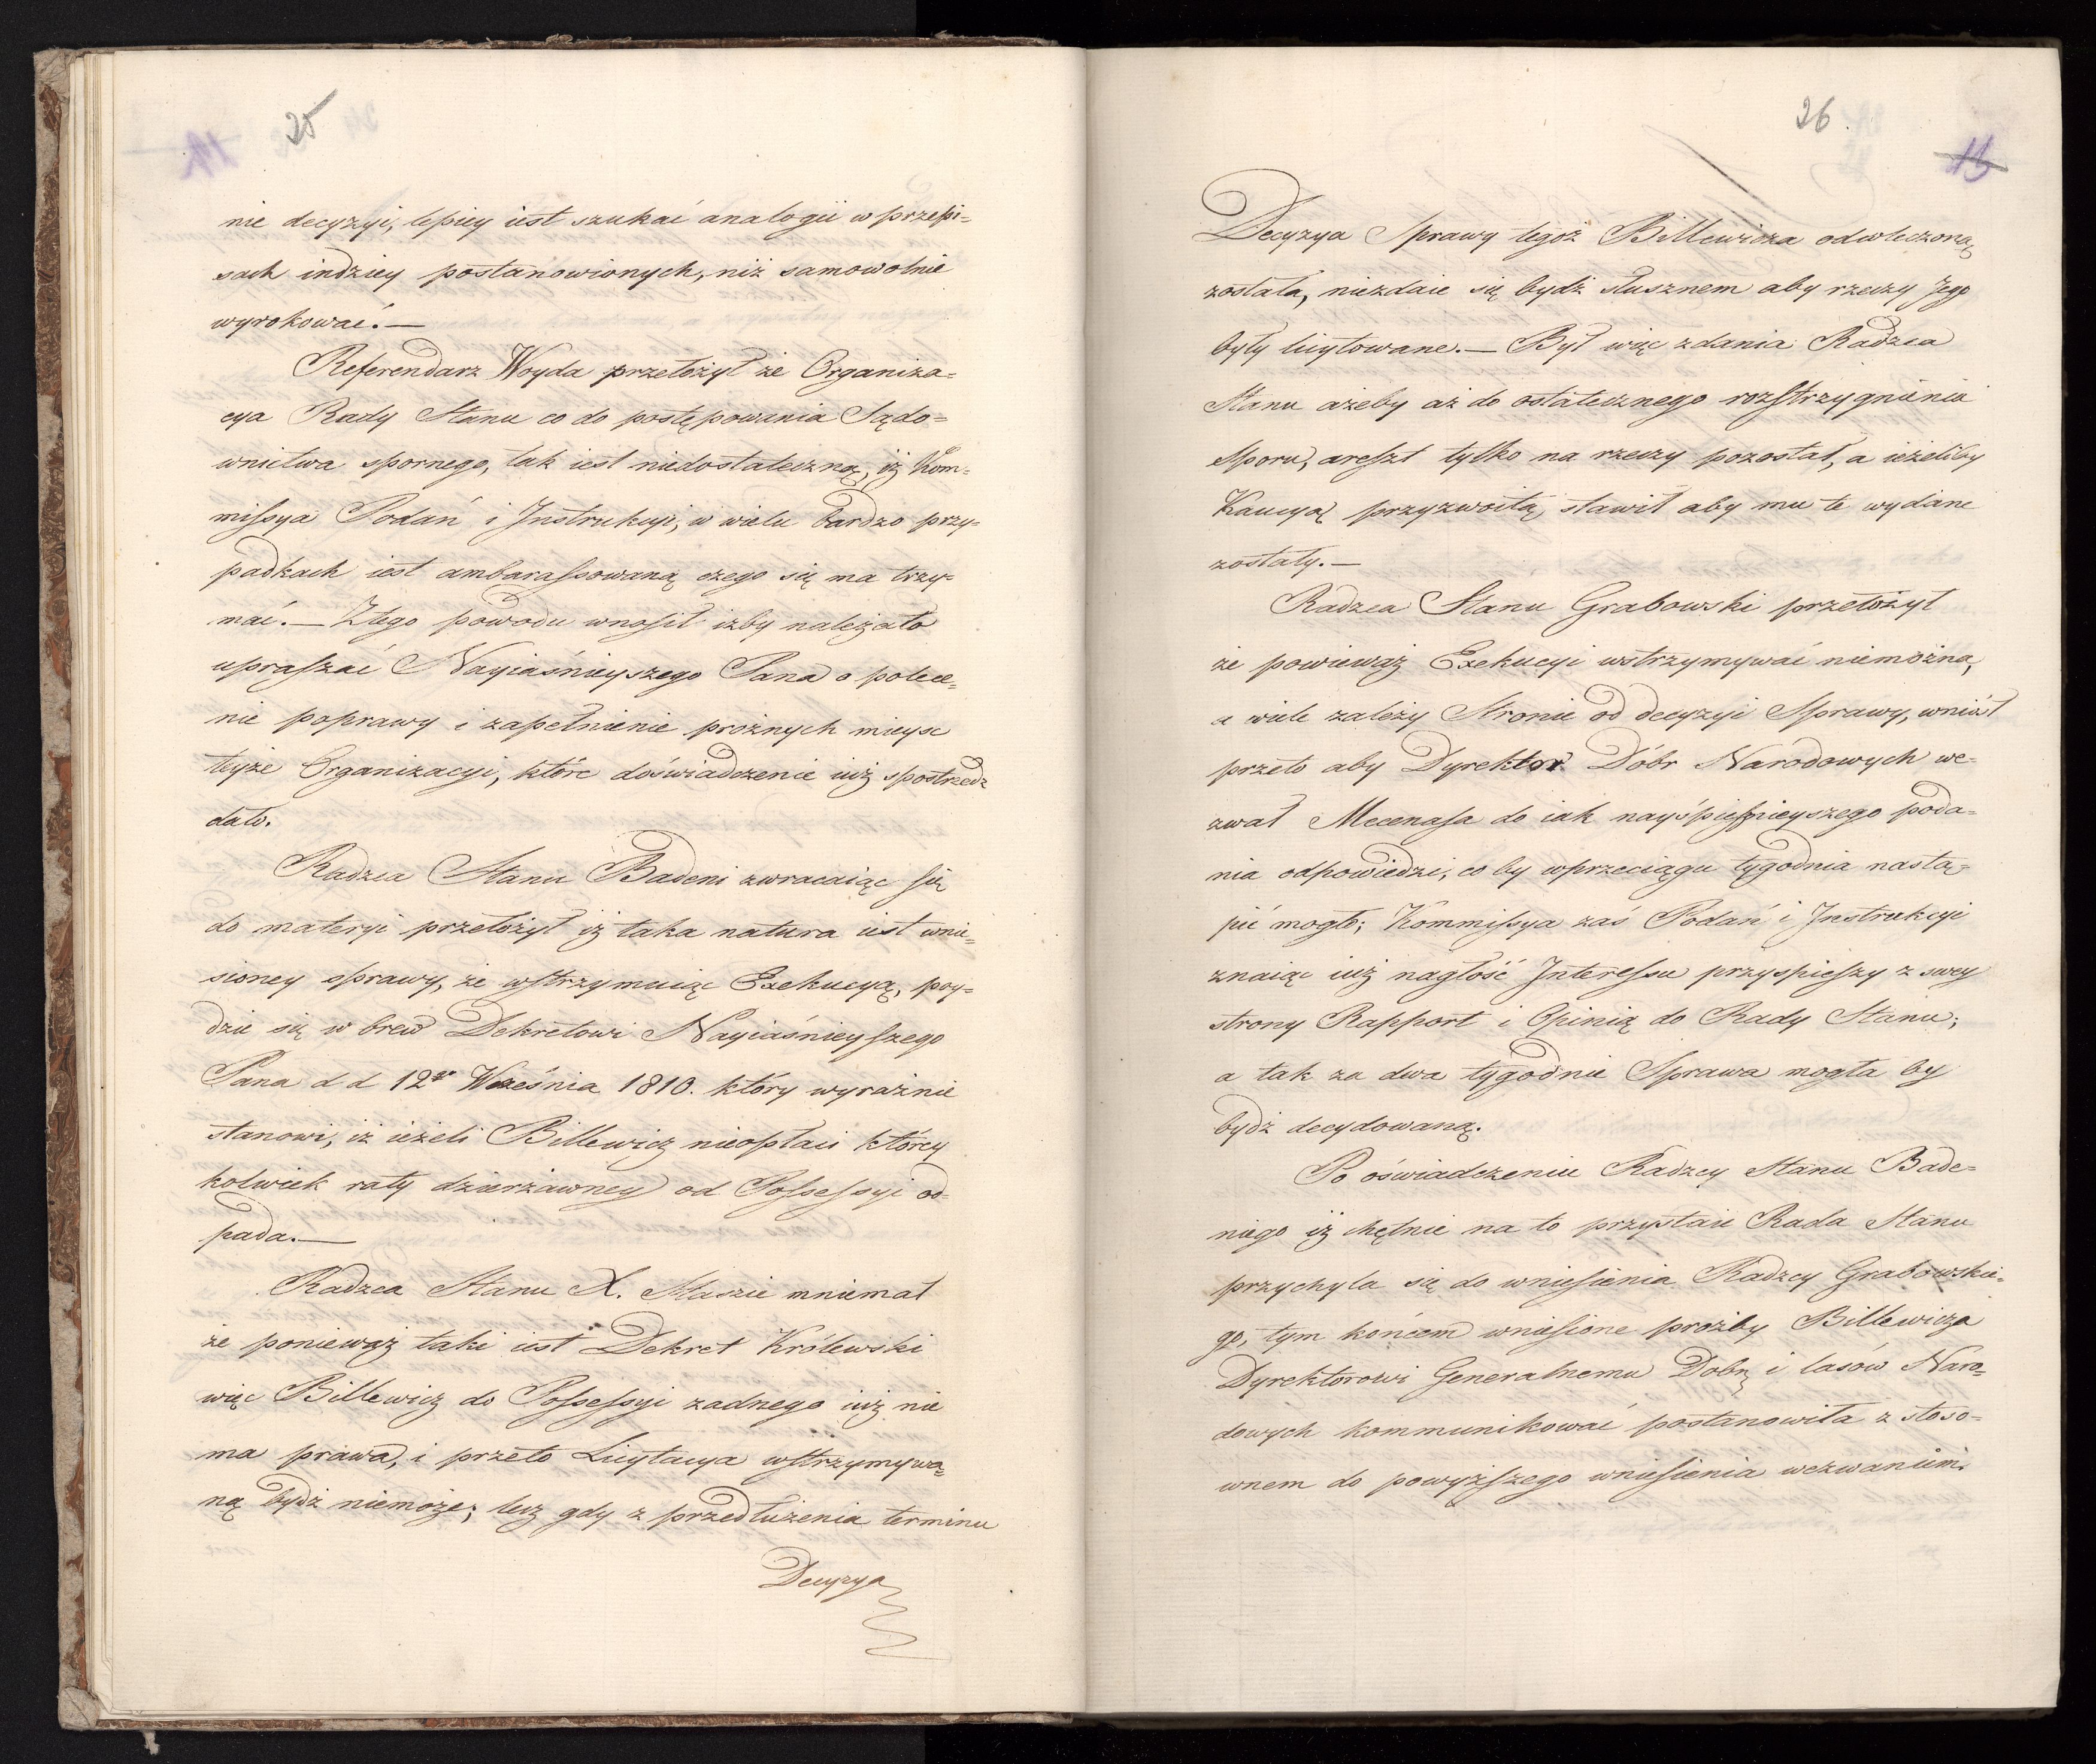 25
nie decyzyi, lepiey iest szukać analogii w przepi=
sach indziey postanowionych, niż samowolnie
wyrokować. —
Referendarz Woyda przełożył że Organiza=
cya Rady Stanu co do postępowania Sądo=
wnictwa spornego, tak iest niedostateczną, iż Kom=
missya Podań i Instrukcyi, w wielu bardzo przy=
padkach iest ambarassowaną czego się ma trzy=
mać. — Ztego powodu wnosił iżby należało
upraszać Nayiaśnieyszego Pana o polece=
nie poprawy i zapełnienie prożnych mieysc
teyże Organizacyi, które doświadczenie iuż spostrzedz
dało.
Radzca Stanu Badeni zwracaiąc się
do materyi przełożył iż taka natura iest wnie=
sioney sprawy, że wstrzymuiąc Exekucyą, poy=
dzie się w brew Dekretowi Nayiaśnieyszego
Pana d d 12go Września 1810. który wyraźnie
stanowi, iż ieżeli Billewicz nieopłaci którey
kolwiek raty dzierżawney od Possessyi od=
pada. —
Radzca Stanu X. Staszic mniemał
że ponieważ taki iest Dekret Królewski
więc Billewicz do Possessyi żadnego iuż nie
ma prawa, i przeto Licytacya wstrzymywa=
ną bydź niemoże; lecz gdy z przedłużenia terminu
Decyzya
26
13
Decyzya Sprawy tegoż Billewicza odwleczoną
została, niezdaie się bydź słusznem aby rzeczy Jego
były licytowane. — Był więc zdania Radzca
Stanu ażeby aż do ostatecznego rozstrzygnienia
Sporu, areszt tylko na rzeczy pozostał, a ieżeliby
Kaucyą przyzwoitą stawił aby mu te wydane
zostały. —
Radzca Stanu Grabowski przełożył
że powieważ Exekucyi wstrzymywać niemożna,
a wiele zależy Stronie od decyzyi Sprawy, wniósł
przeto aby Dyrektor Dóbr Narodowych we=
zwał Mecenasa do iak nayśpiesznieyszego poda=
nia odpowiedzi, co by wprzeciągu tygodnia nastą=
pić mogło; Kommissya zaś Podań i Instrukcyi
znaiąc iuż nagłość Interessu przyspieszy z swey
strony Rapport i Opinią do Rady Stanu;
a tak za dwa tygodnie Sprawa mogła by
bydź decydowaną.
Po oświadczeniu Radzcy Stanu Bade=
niego iż chętnie na to przystaie Rada Stanu
przychyla się do wniesienia Radzcy Grabowskie=
go, tym końcem wniesione prozby Billewicza
Dyrektorowi Generalnemu Dobr i lasów Naro=
dowych kommunikować postanowiła z stoso=
wnem do powyższego wniesienia wezwaniem.